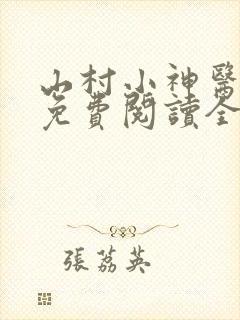 山村小神醫
免費閱讀全
張荔英